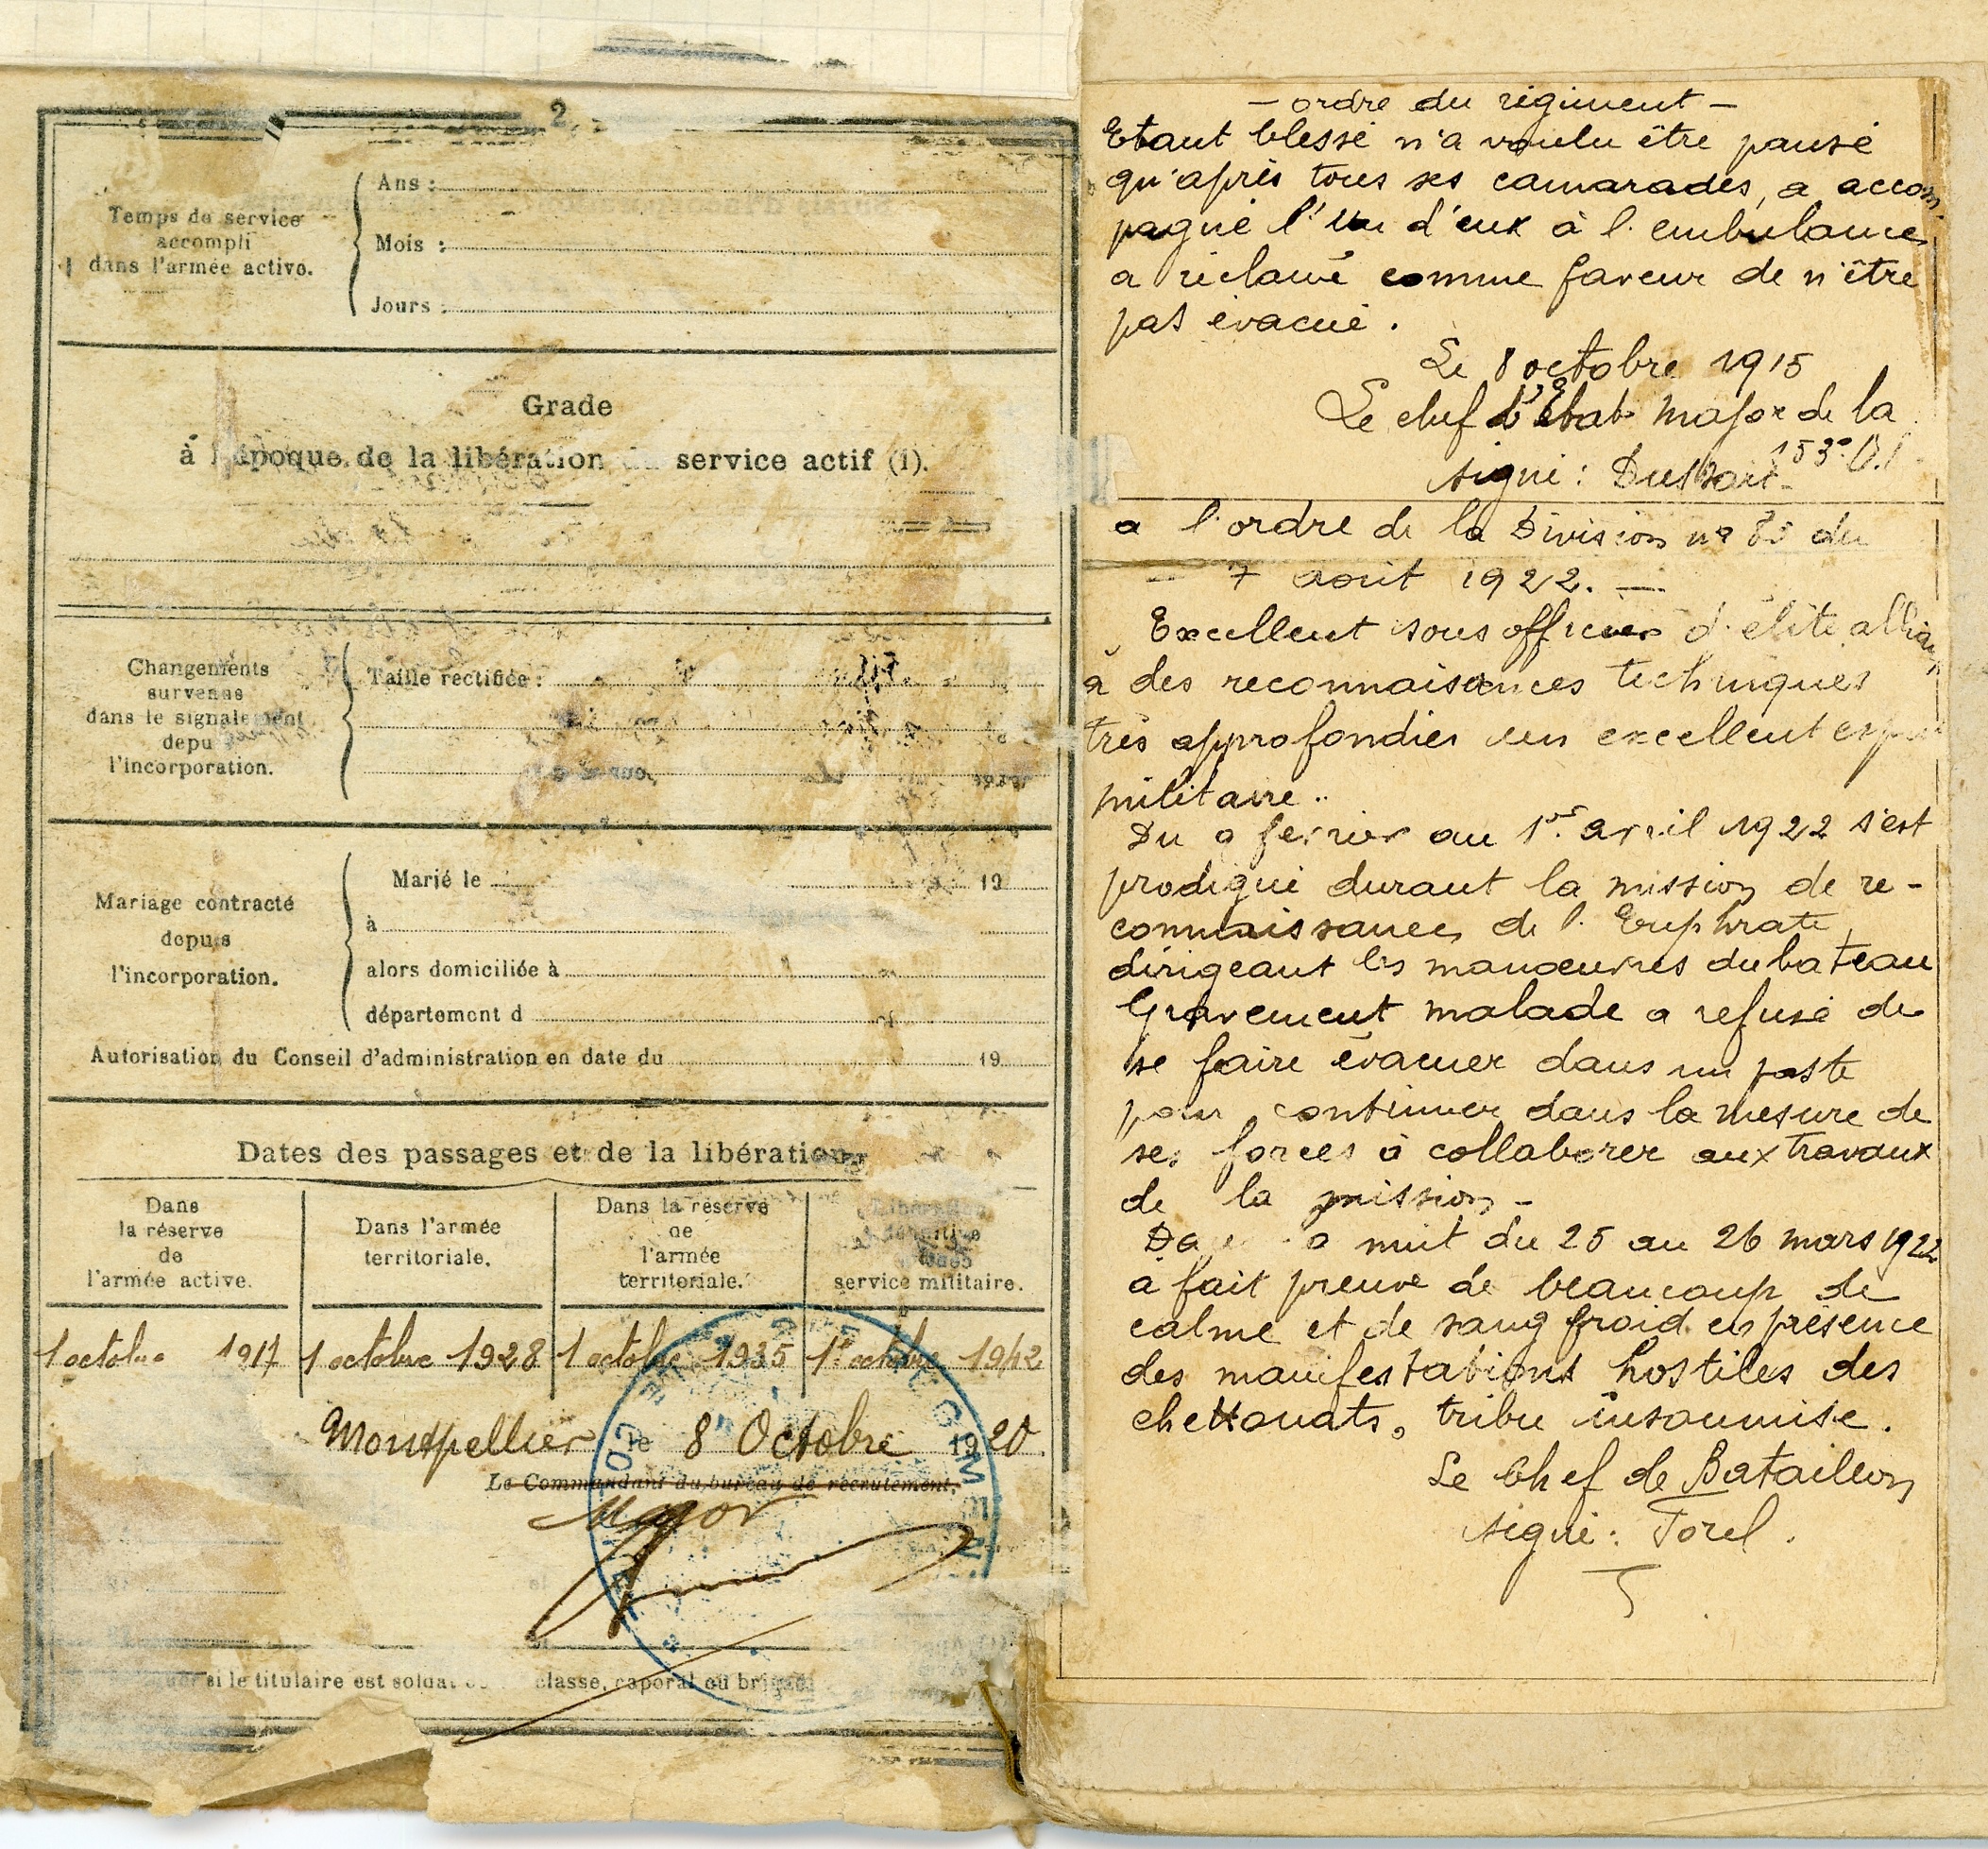 2
Temps de service
accompli
dans l'armée active.
Ans :
Mois :
Jours :
Grade
à l'époque de la libération service actif (1).
Changements
survenus
dans le signalement
depu
l'incorporation.
Taille rectifiée :
Mariage contracté
depuis
l'incorporation.
Marié le 19
à
alors domiciliée à
département d
Autorisation du Conseil d'administration en date du 19
Dates des passages et de la libération
Dans
la réserve
de
l'armée active.
Dans l'armée
territoriale.
Dans la réserve
de
l'armée
territoriale.
service militaire.
1 octobre 1917
1 octobre 1928
1 octobre 1935
1er octobre 1942
Montpellier le 8 Octobre 1920
Le Commandant du bureau de recrutement,
Major
si le titulaire est soldat classe, caporal ou brig
— ordre du régiment —
Etant blessé n'a voulu être pansé
qu'après tous ses camarades, a accom-
pagné l'un d'eux à l'embulance
a réclamé comme faveur de n'être
pas évacué.
Le 8 octobre 1915
Le chef d'Etat Major de la
153e D.I
signé :
a l'ordre de la Division n° du
7 août 1922. —
Excellent sous officier d'élite allian
à des reconnaisances techniques
très approfondies un excellent esprit
militaire..
Du 9 fevrier au 1er avril 1922 s'est
prodigué durant la mission de re-
connaissance de l'Euphrate
dirigeant les manœuvres du bateau
Gravement malade a refusé de
se faire évacuer dans un poste
pour continuer dans la mesure de
ses forces à collaborer aux travaux
de la mission -
a nuit du 25 au 26 mars 1922
à fait preuve de beaucoup de
calme et de sang froid en présence
des manifestations hostiles des
chettouats, tribu insoumise.
Le Chef de Bataillon
signé : Torel.